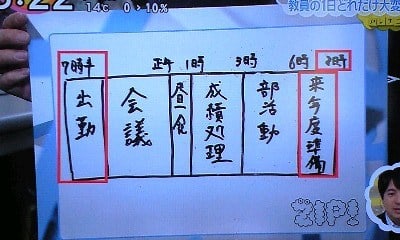 14℃ 0▶10%
教員の1日どれだけ大変
7時半
正午
1時
3時
6時
出勤
会議
昼食
成績処理
部活動
来年度準備
ZIP!